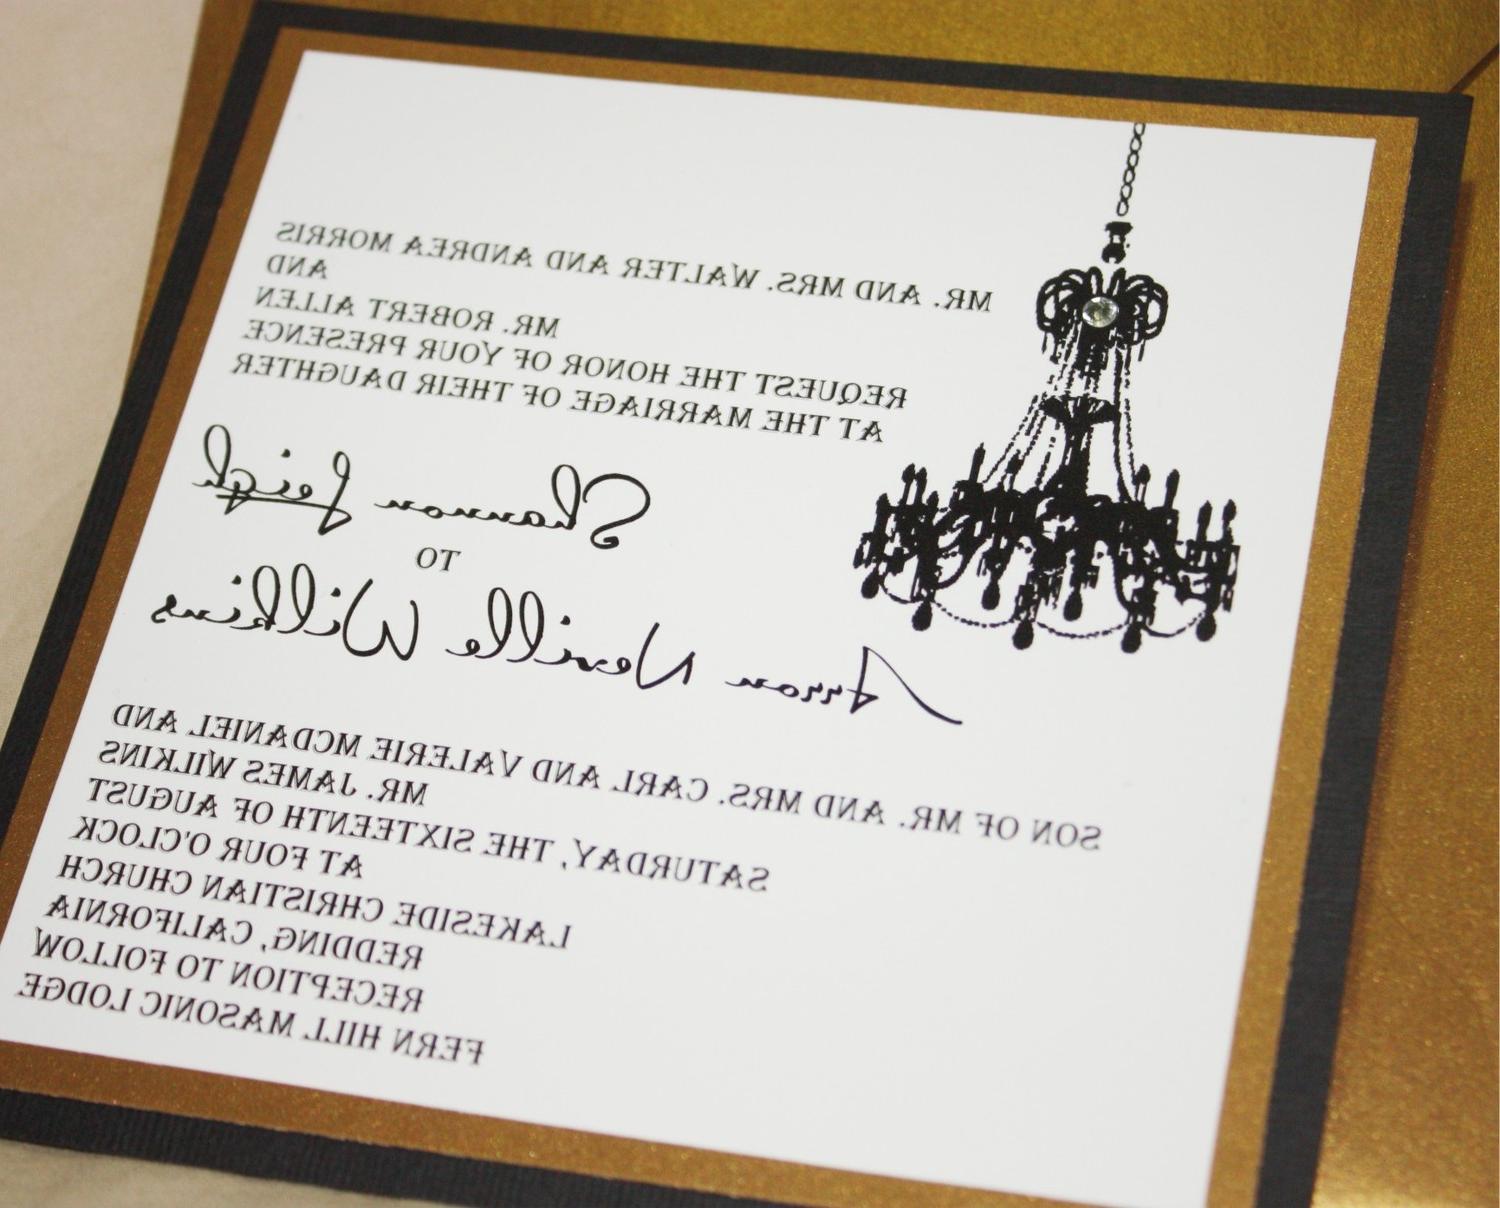 MR. AND MRS. WALTER AND ANDREA MORRIS
AND
MR. ROBERT ALLEN
REQUEST THE HONOR OF YOUR PRESENCE
AT THE MARRIAGE OF THEIR DAUGHTER
Shannon Leigh
TO
Arron Neville Wilkins
SON OF MR. AND MRS. CARL AND VALERIE MCDANIEL AND
MR. JAMES WILKINS
SATURDAY, THE SIXTEENTH OF AUGUST
AT FOUR O'CLOCK
LAKESIDE CHRISTIAN CHURCH
REDDING, CALIFORNIA
RECEPTION TO FOLLOW
FERN HILL MASONIC LODGE